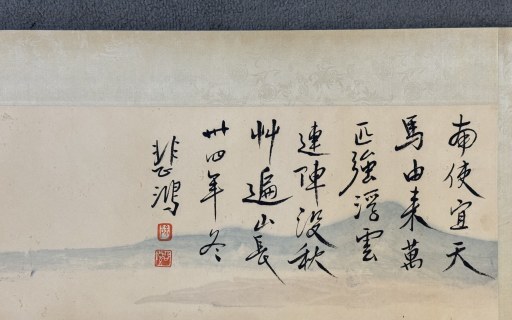 南使宜天
馬由来萬
匹強浮雲
連陣没秋
艸遍山長
卅四年冬
悲鴻